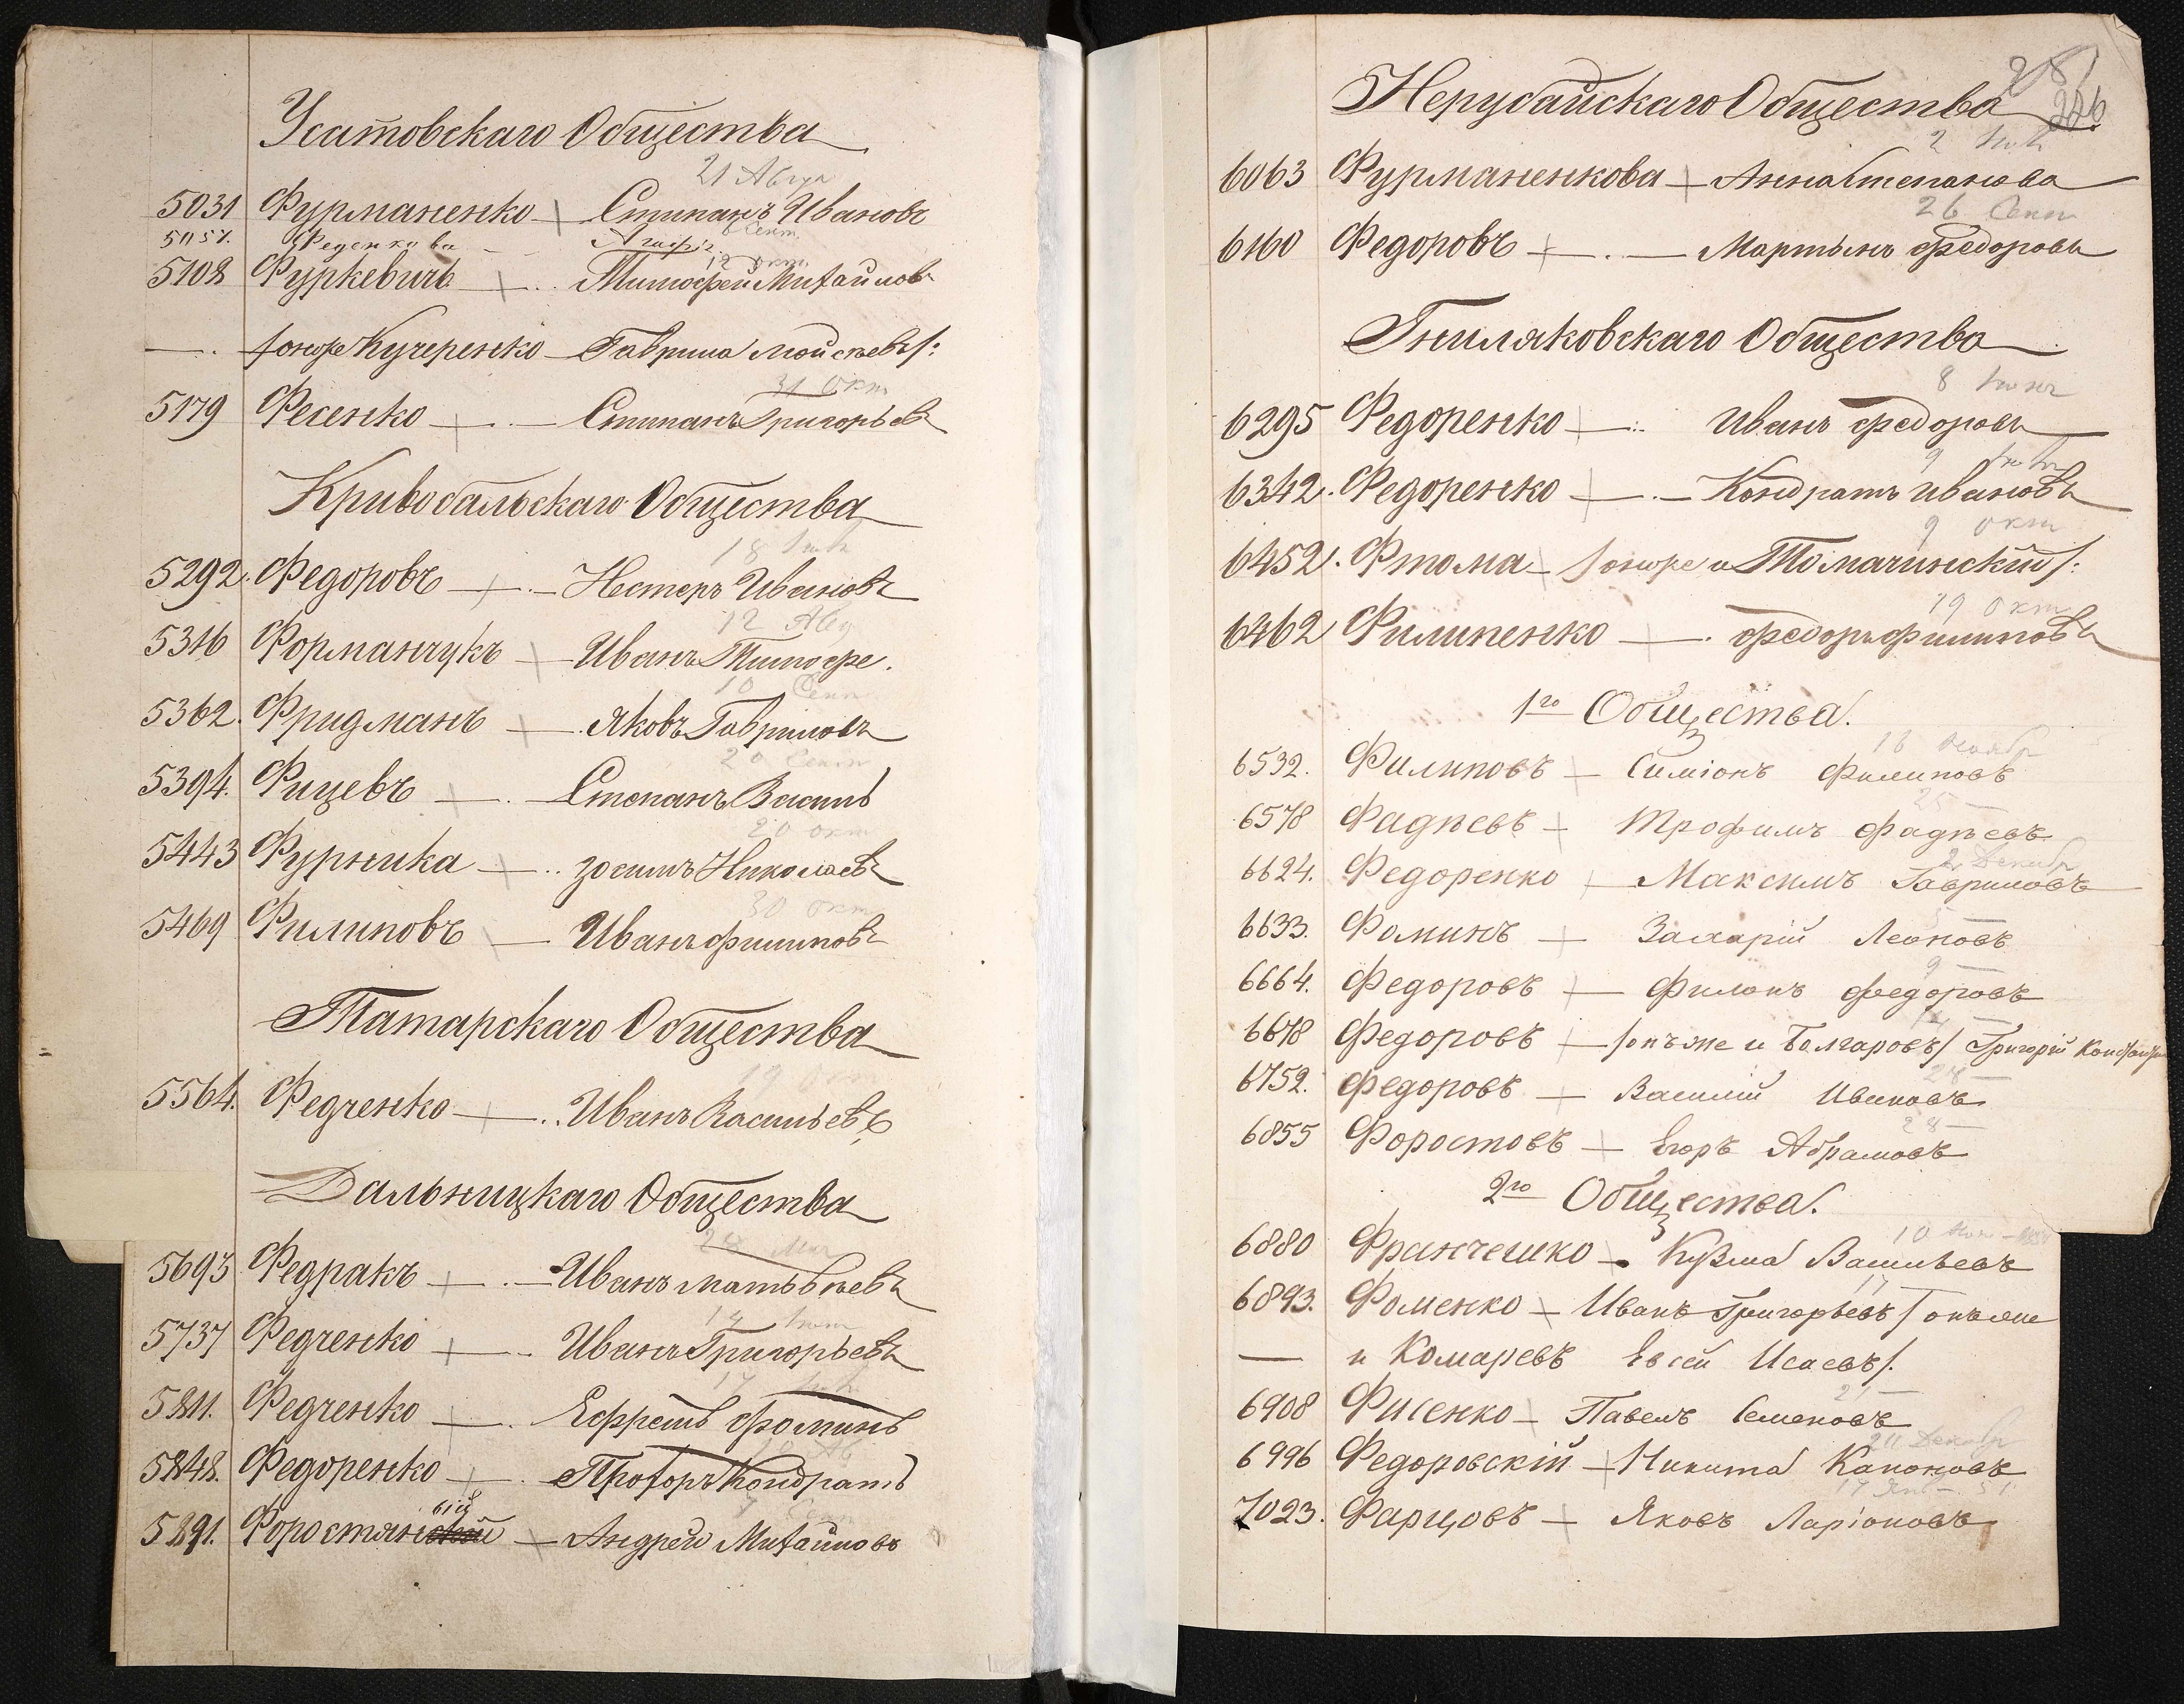 Усатовскаго Общества
21 Авгу
5031 Фурманенко — Стипанъ Ивановъ
6 Сент.
5057. Феденкова — Агафiя
12 окт.
5108 Фуркевичъ — Тимофей Михайловъ
—. /онъже Кучеренко — Гаврила Мойсеевъ/:
31 Окт
5179 Фесенко — Стипанъ Григорьевъ
Кривобальскаго Общества
18
5292. Федоровъ — Нестеръ Ивановъ
12 Авгу
5316 Форманчукъ — Иванъ Тимофе.
10 Сент
5362. Фридманъ — Яковъ Гавриловъ
20 Сент
5394. Фицевъ — Степанъ Василь
20 окт
5443 Фурника — Зосимъ Николаевъ
30 окт
5469 Филиповъ — Иванъ Филиповъ
Татарскаго Общества
19 Окт
5564. Федченко — Иванъ Васильевъ
Дальницкаго Общества
28 Мая
5693 Федракъ — Иванъ Матвѣевъ
14
5737 Федченко — Иванъ Григорьевъ
17
5811. Федченко — Ефремъ Фоминъ
5848. Федоренко — Прохоръ Кондратъ
5891. Форостян — Андрей Михайловъ
226
Нерубайскаго Общества
2
6063 Фурманенкова — Анна Степанова
26 Сент
6160 Федоровъ — Мартынъ Федоровъ
Гниляковскаго Общества
8 Iюнь
6295 Федоренко — Иванъ Федоровъ
9
6342. Федоренко — Кондратъ Ивановъ
9 окт
6452. Фтома — /онъже и Томачинскiй/:
19 окт
6462 Филипенко — Федоръ Филиповъ
1го Общества.
16 Ноябр
6532. Филиповъ — Симiонъ Филиповъ
25 —
6578 Фадѣевъ — Трофимъ Фадѣевъ
2 Декабр
6624. Федоренко — Максимъ Гавриловъ
6633. Фоминъ — Захарiй Леоновъ
9 —
6664. Федоровъ — Филонъ Федоровъ
14 —
6678 Федоровъ — /онъже и Болгаровъ/ Григорiй
28 —
6752. Федоровъ — Василiй Ивановъ
28 —
6855 Форостовъ — Егоръ Абрамовъ
2го Общества.
10
6880 Франчешко — Кузма Васильевъ
17 —
6893. Фоменко — Иванъ Григорьевъ /онъже
— и Комаревъ Евсей Исаевъ/.
21 —
6908 Фисенко — Павелъ Семеновъ
20 Декабр
6996 Федоровскiй — Никита Капоновъ
17 Янв
7023. Фарцовъ — Яковъ Ларiоновъ